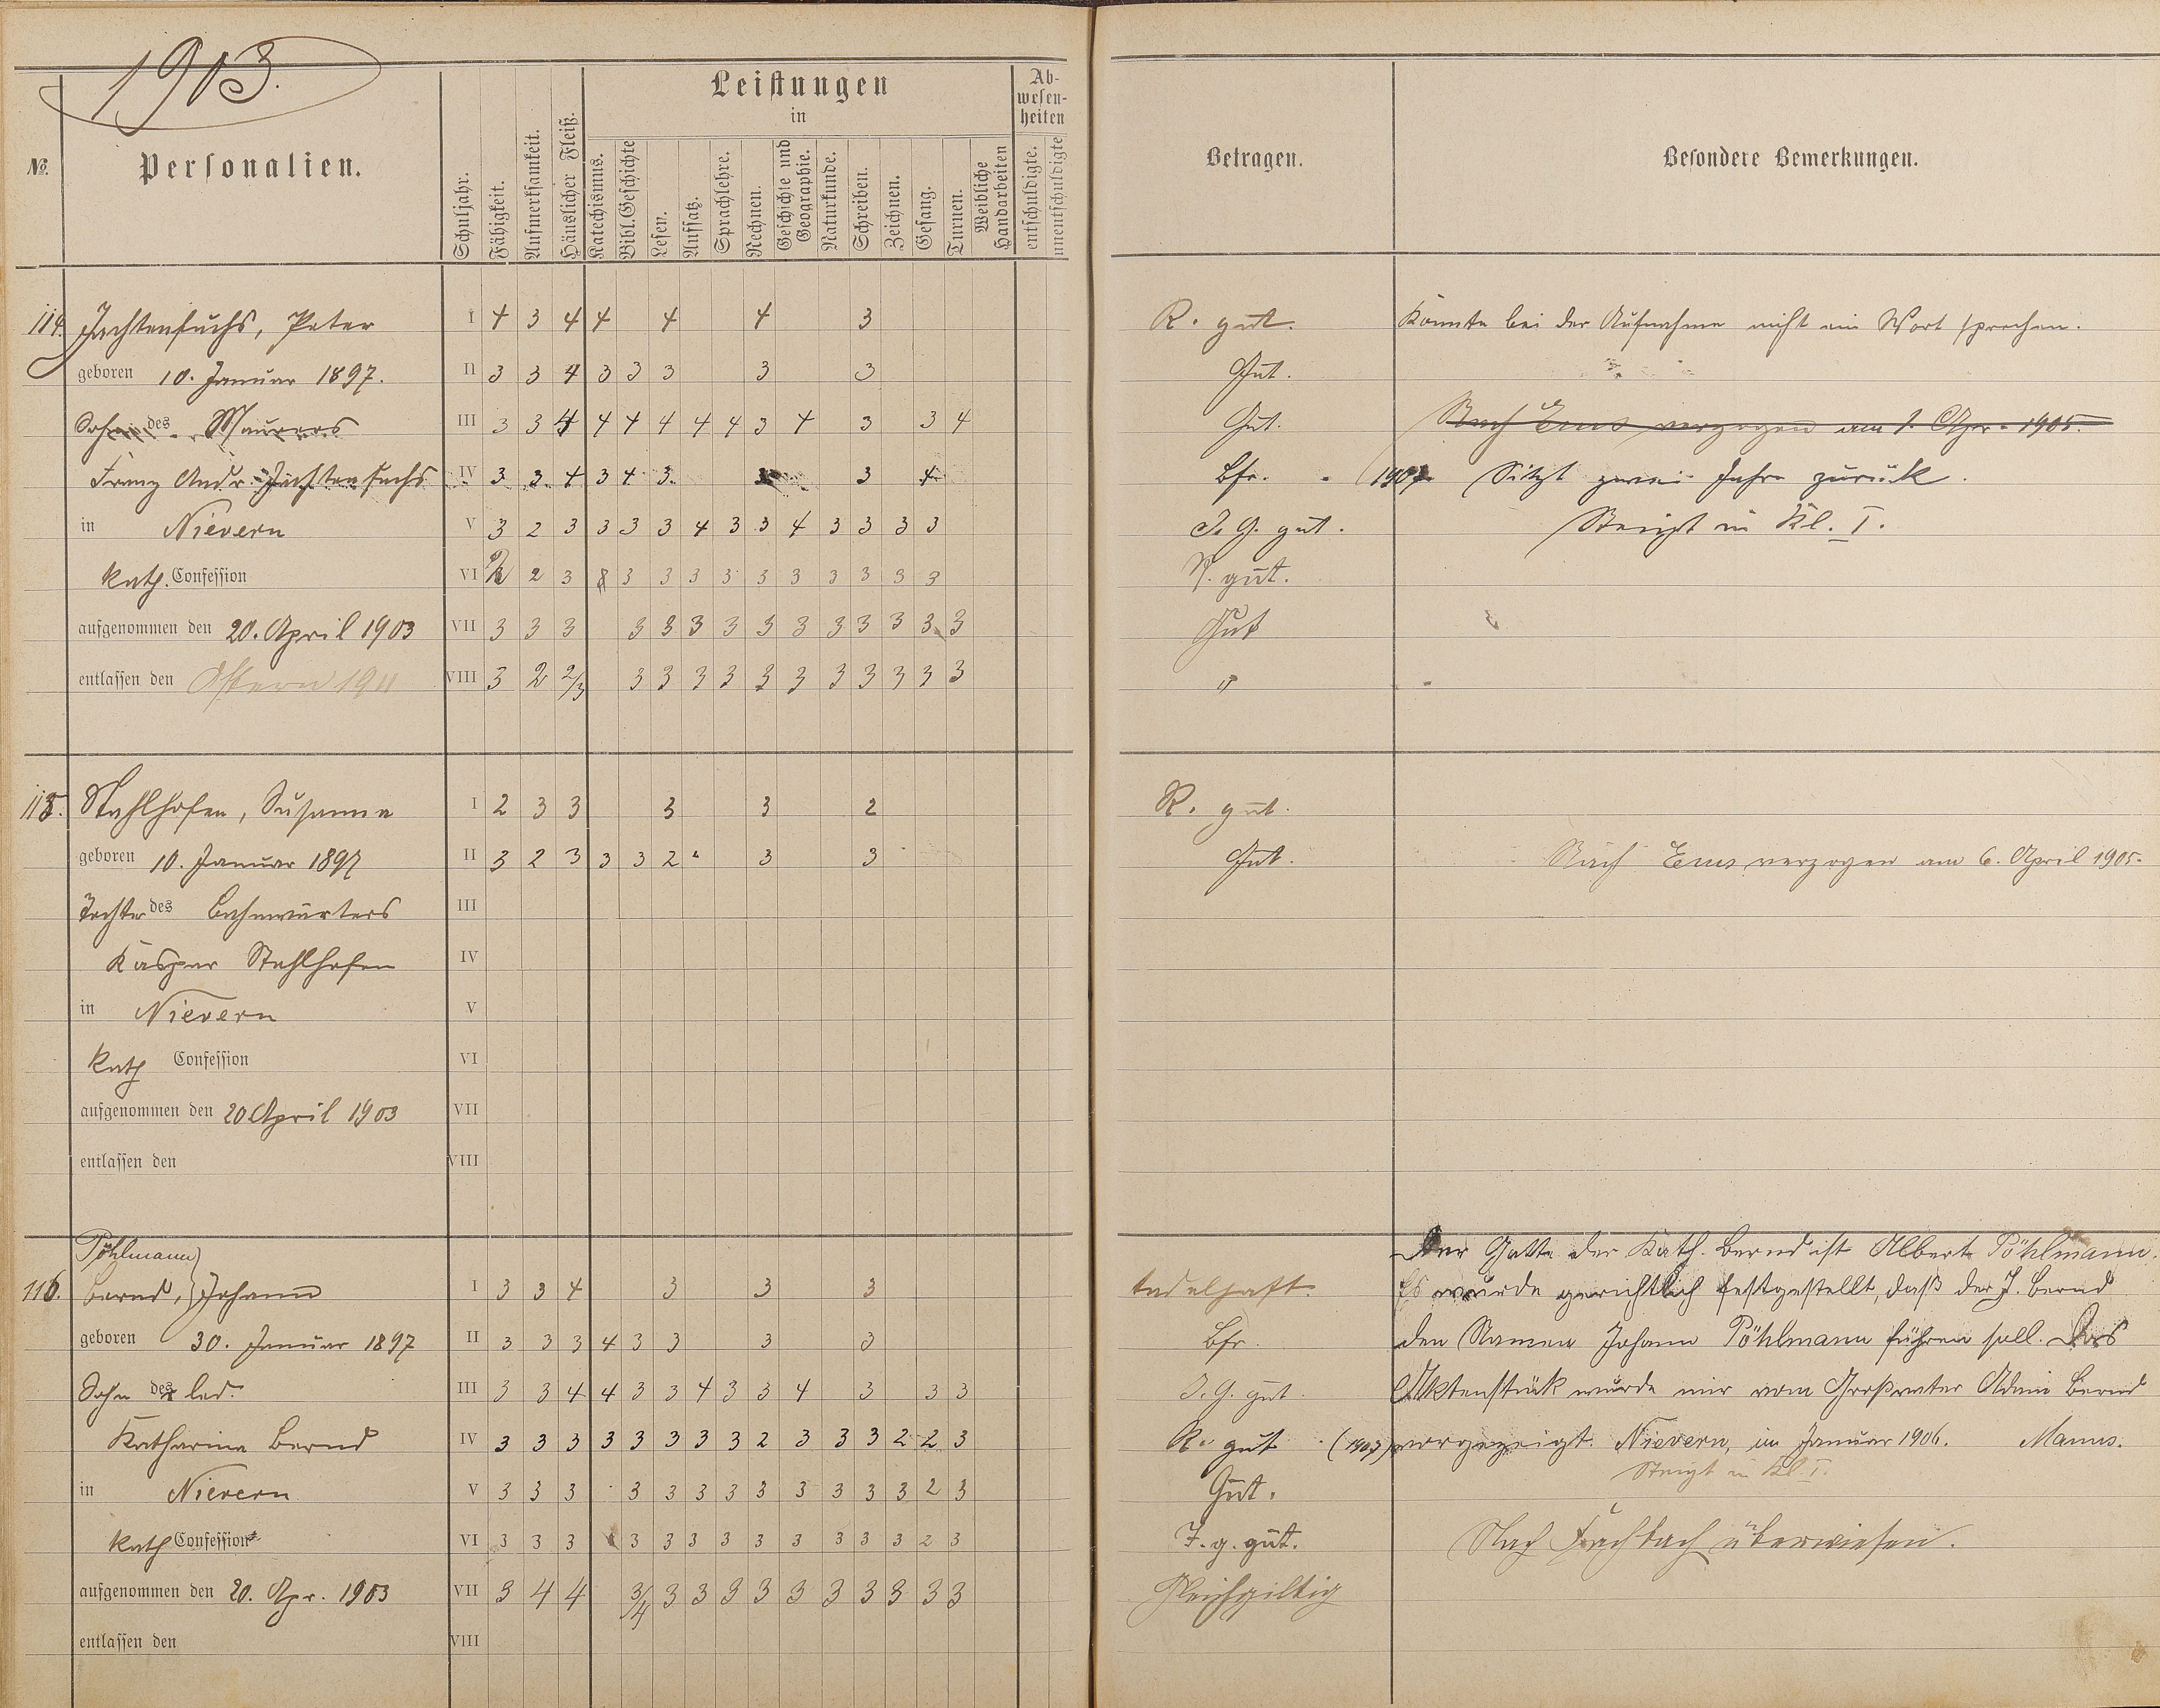 1903.
№.
Personalien.
Schuljahr.
Fähigkeit.
Aufmerksamkeit.
Häuslicher Fleiß.
Leistungen
in
Katechismus.
Bibl. Geschichte
Lesen.
Aufsatz.
Sprachlehre.
Rechnen.
Geschichte und Geographie.
Naturkunde.
Schreiben.
Zeichnen.
Gesang.
Turnen.
Weibliche Handarbeiten
Ab-
wesen-
heiten
entschuldigte.
unentschuldigte
Betragen.
Besondere Bemerkungen.
114. Jachtenfuchs, Peter I 4 3 4 4 4 4 3 R. gut. Konnte bei der Aufnahme nicht ein Wort sprechen.
geboren 10. Januar 1897. II 3 3 4 3 3 3 3 3 Gut.
Sohn des Maurers III 3 3 4 4 4 4 4 4 3 4 3 3 4 Gut. Nach Ems verzogen am 1. Apr. 1905.
Franz Andr. Jachtenfuchs IV 3 3 4 3 4 3 3 4 Bfr. 1907. Sitzt zwei Jahre zurück.
in Nievern V 3 2 3 3 3 3 4 3 3 4 3 3 3 3 I. G. gut. Steigt in Kl. I.
kath. Confession VI 2 3 3 3 3 3 3 3 3 3 3 3 gut.
aufgenommen den 20. April 1903 VII 3 3 3 3 3 3 3 3 3 3 3 3 3 3 Gut
entlassen den Ostern 1911 VIII 3 2 2/3 3 3 3 3 3 3 3 3 3 3 3 "
115. Stahlhofen, Susanna I 2 3 3 3 3 2 R. gut.
geboren 10. Januar 1897 II 3 2 3 3 3 2 3 3 Gut. Nach Ems verzogen am 6. April 1905.
Tochter des Bahnwärters III
Kaspar Stahlhofen IV
in Nievern V
kath Confession VI
aufgenommen den 20 April 1903 VII
entlassen den VIII
Pöhlmann Der Gatte der Kath. Bernd ist Albert Pöhlmann.
116. Bernd, Johann I 3 3 4 3 3 3 tadelhaft. Es wurde gerichtlich festgestellt, daß der J. Bernd
geboren 30. Januar 1897 II 3 3 3 4 3 3 3 3 Bfr. den Namen Johann Pöhlmann führen soll. Das
Sohn der led. III 3 3 4 4 3 3 4 3 3 4 3 3 3 I. G. gut. Aktenstück wurde mir vom Großvater Adam Bernd
Katharina Bernd IV 3 3 3 3 3 3 3 3 2 3 3 3 2 2 3 R. gut (1907) vorgezeigt. Nievern, im Januar 1906. Manns.
Steigt in Kl. I.
in Nievern V 3 3 3 3 3 3 3 3 3 3 3 3 2 3 Gut.
kath Confession VI 3 3 3 3 3 3 3 3 3 3 3 3 2 3 I. g. gut. Nach Fachbach überwiesen.
aufgenommen den 20. Apr. 1903 VII 3 4 4 3/4 3 3 3 3 3 3 3 3 3 3 Gleichgiltig
entlassen den VIII